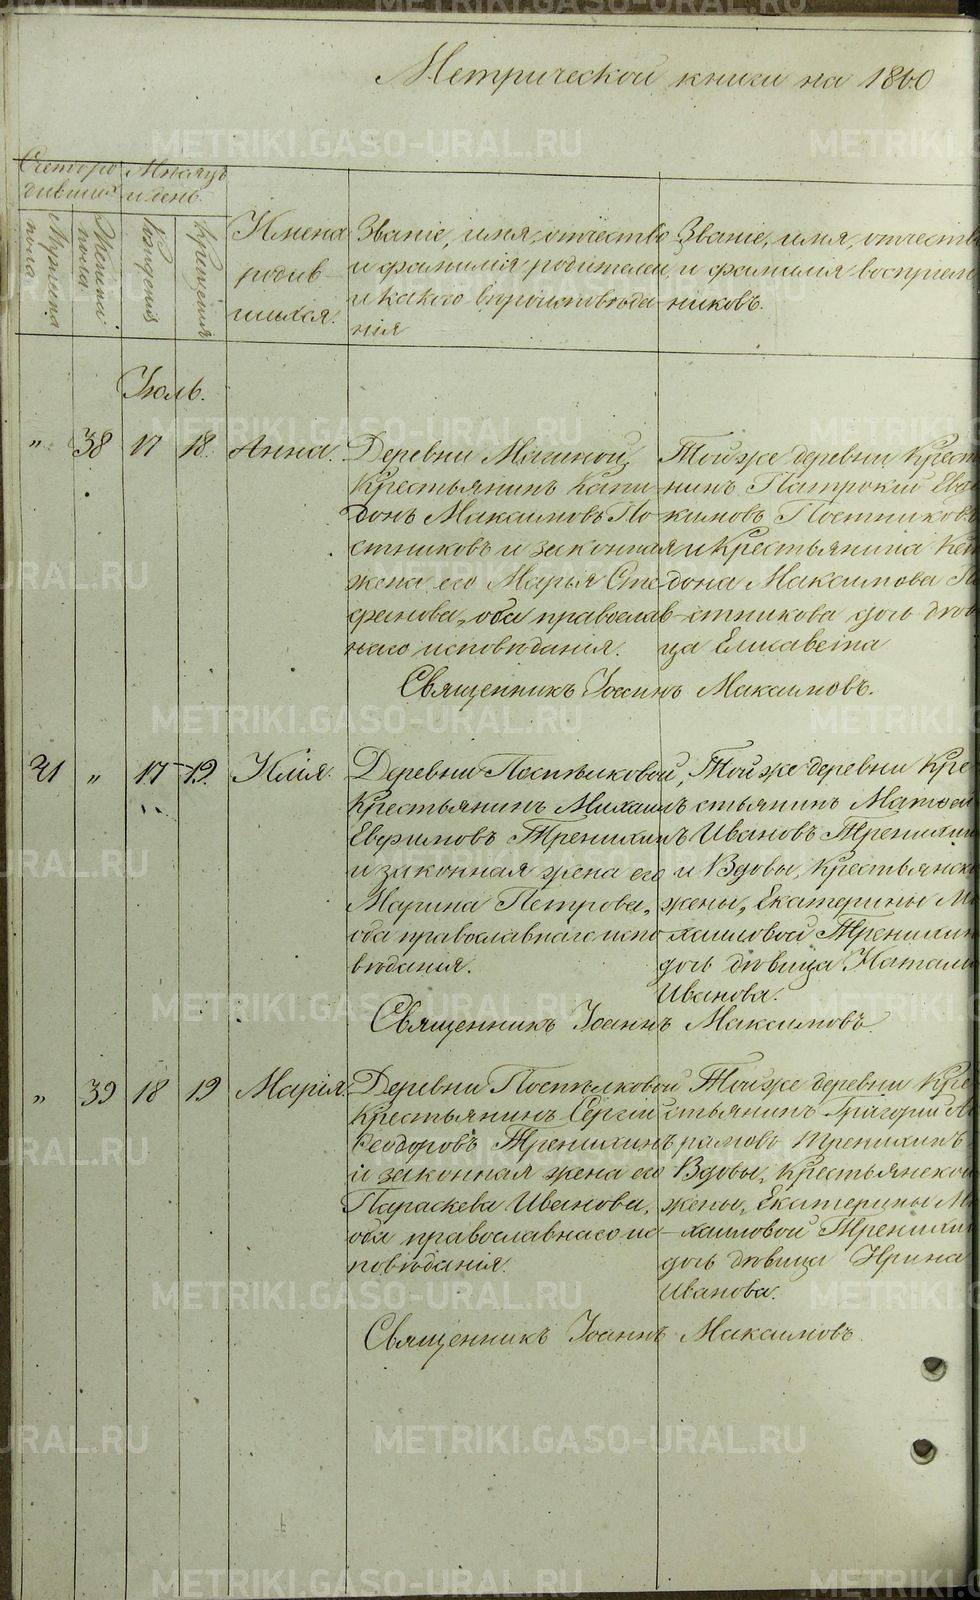 Метрической книги на 1860
Счетъ роди
вшихся
Мѣсяцъ
и день.
Мужеска
пола
Женска
пола
Рожденія
Крещенія
Имена
родив
шихся.
Званіе, имя, отчество
и фамилія родителей,
и какого вѣроисповѣда
нія
Званіе, имя, отчество
и фамилія воспріем
никовъ.
Іюль.
" 38 17 18. Анна.
Деревни Мачиной,
Крестьянинъ Капи
донъ Максимовъ По
стниковъ и законная
жена его Марья Сте
фанова, оба православ
наго исповѣданія.
Той же деревни Крест
нинъ Патрокій Евд
кимовъ Постниковъ
и Крестьянина
дона Максимова По
стникова дочь дѣви
ца Елисавета
Священникъ Іоаннъ Максимовъ.
41 " 17 19. Илія.
Деревни Поспѣлковой,
Крестьянинъ Михаилъ
Евфимовъ Тренихинъ
и законная жена его
Марина Петрова,
оба православнаго испо
вѣданія.
Той же деревни Кре
стьянинъ Матвей
Ивановъ Тренихин
и Вдовы, Крестьянско
жены, Екатерины Ми
хаиловой Тренихин
дочь дѣвица Натал
Иванова.
Священникъ Іоаннъ Максимовъ
" 39 18 19 Марія.
Деревни Поспѣлковой
Крестьянинъ Сергей
Ѳеодоровъ Тренихинъ
и законная жена его
Параскева Иванова,
оба православнаго ис
повѣданія.
Той же деревни Кре
стьянинъ Григорий Ав
рамовъ Тренихинъ
Вдовы, Крестьянской
жены, Екатерины Ми
хаиловой Тренихин
дочь дѣвица Ирина
Иванова.
Священникъ Іоаннъ Максимовъ.
METRIKI.GASO-URAL.RU